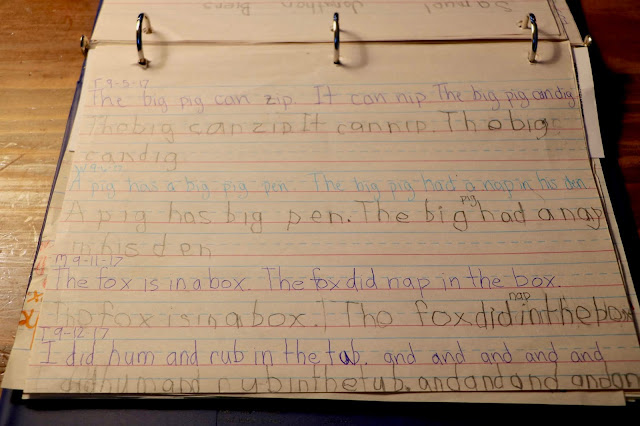 Samuel Jonathan
T 9-5-17
The big pig can zip It can nip The big pig can dig
The big can zip It can nip. The big
can dig
A pig has a big pig pen. The big pig had a nap in his den
pig
A pig has big pen. The big had a nap
in his den
M 9-11-17
The fox is in a box. The fox did nap in the box.
nap
The fox is in a box. The fox did in the box
T 9-12-17
I did hum and rub in the tub. and and and and and
did hum and rub in the tub. and and and and an